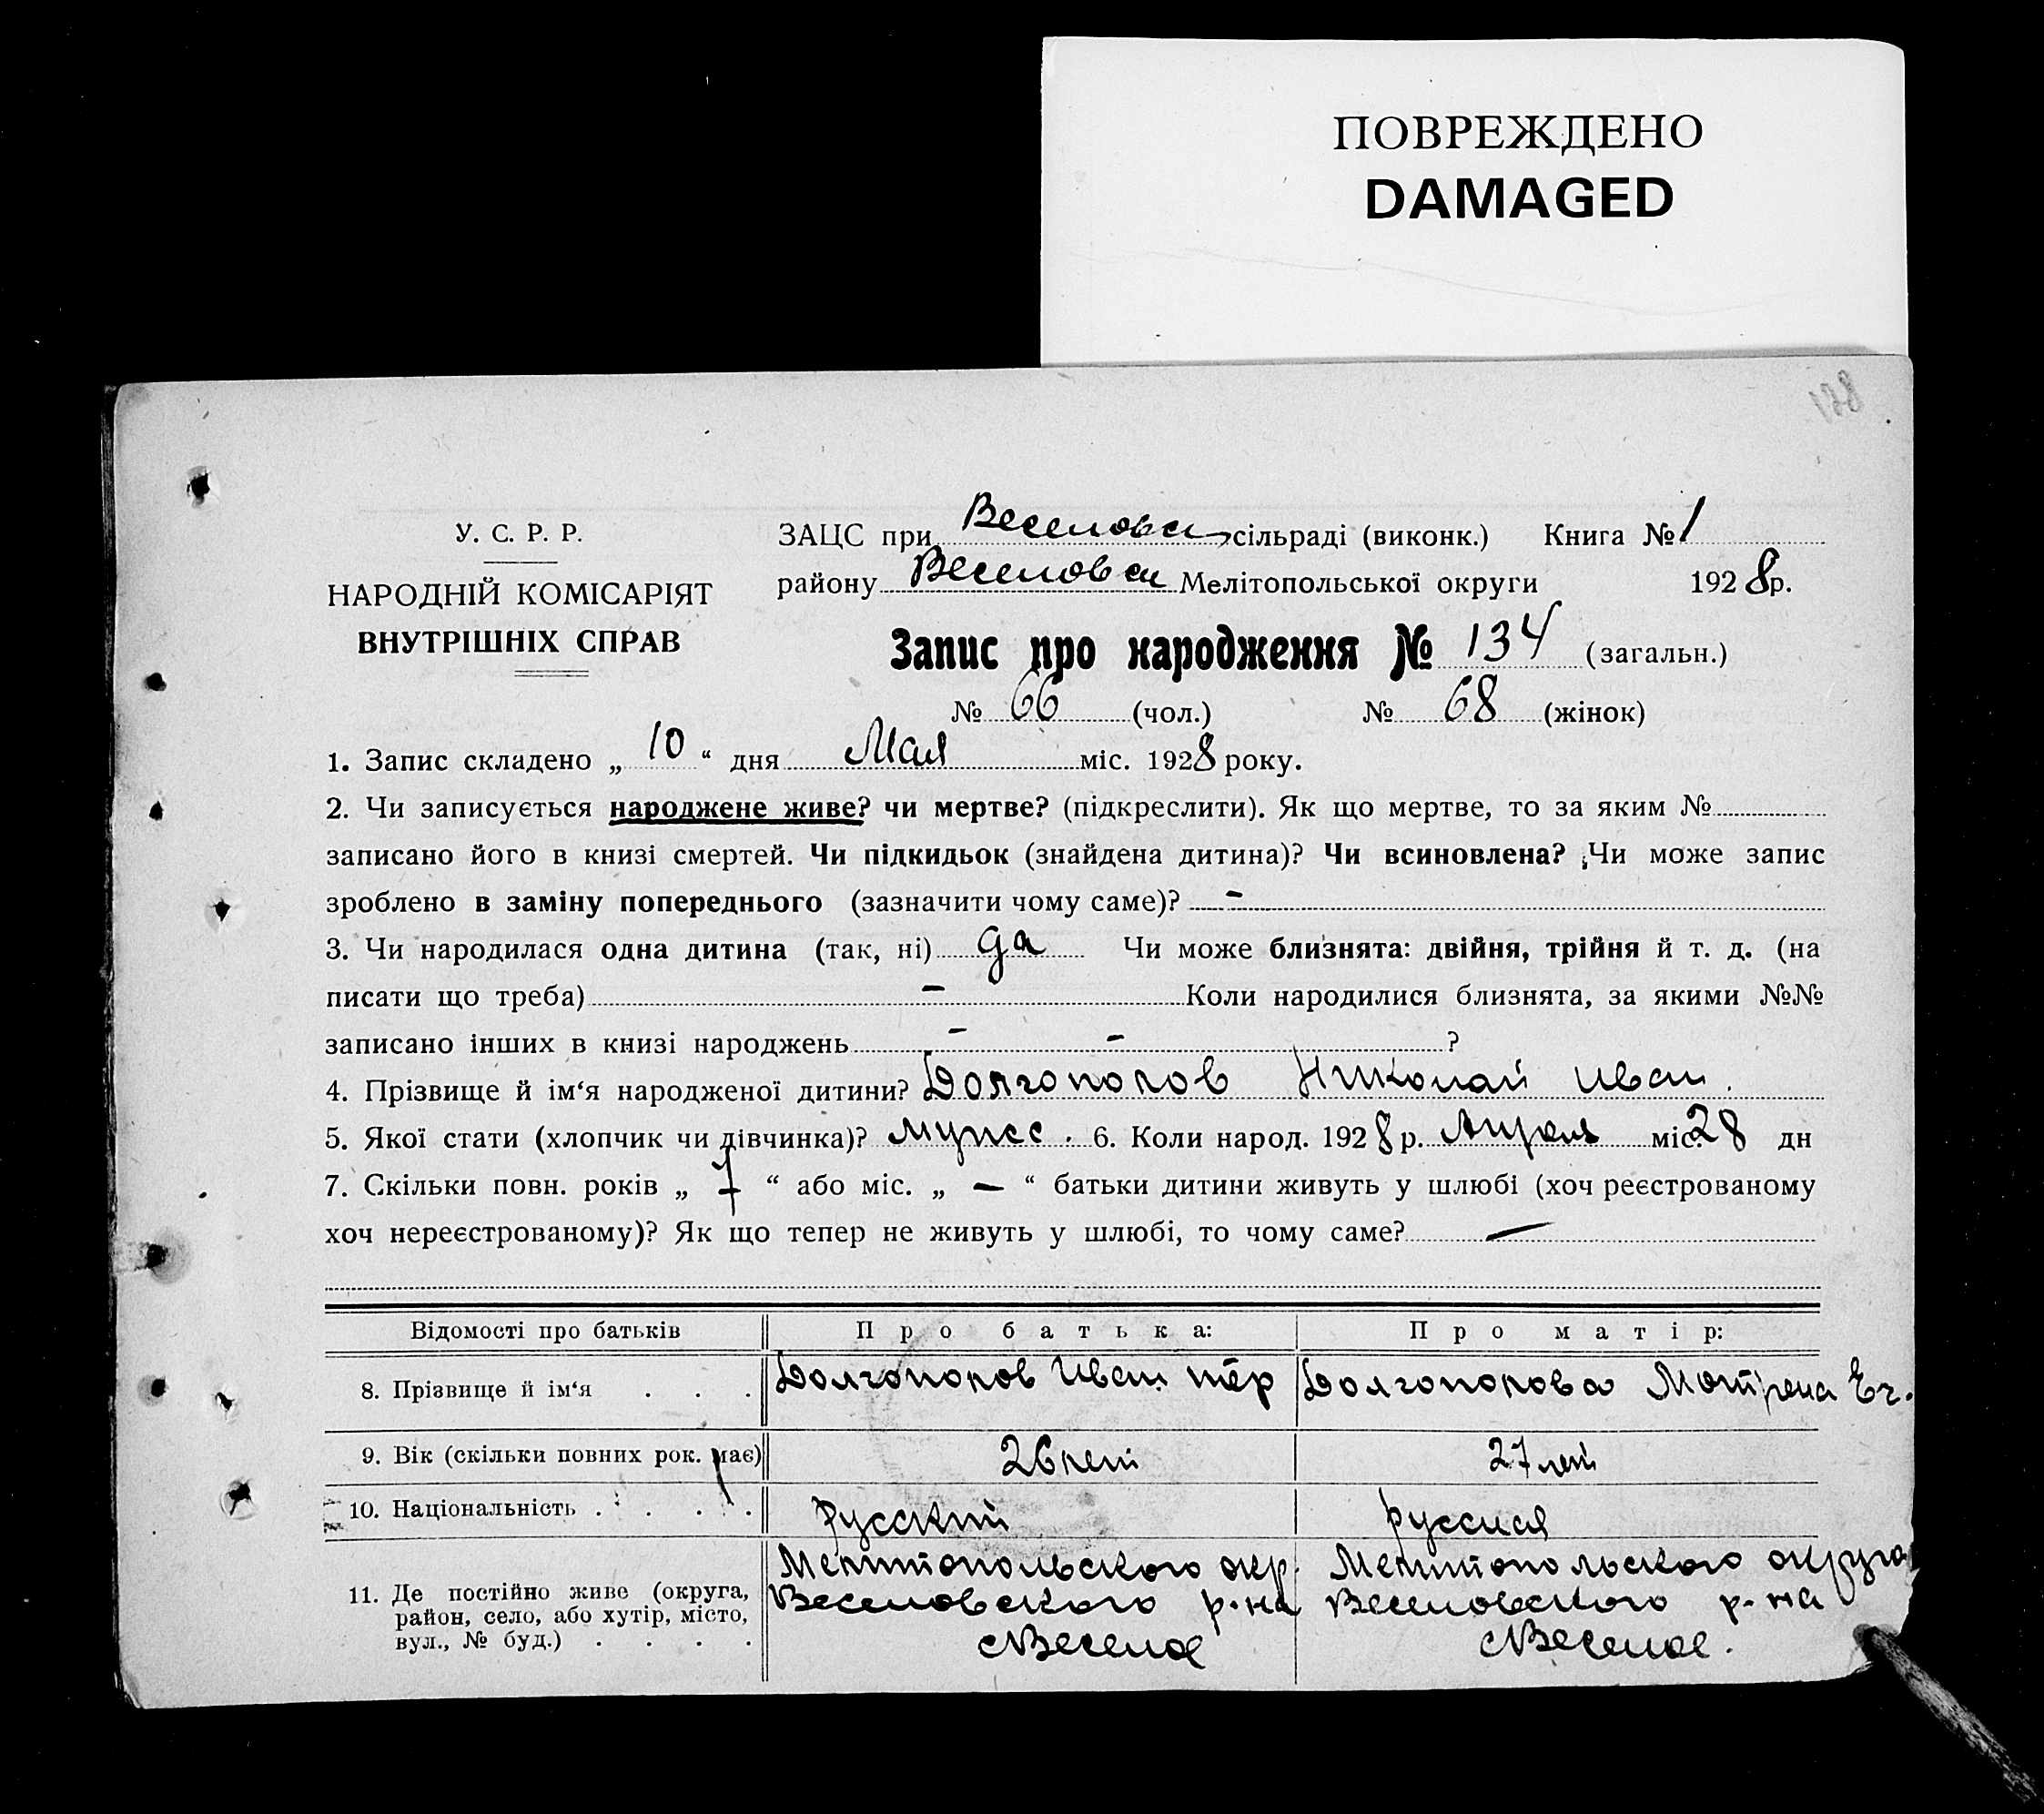 ПОВРЕЖДЕНО
DAMAGED
У. С. Р. Р.
НАРОДНІЙ КОМІСАРІЯТ
ВНУТРІШНІХ СПРАВ
ЗАЦС при Веселовск сільраді (виконк.) Книга № 1
району Веселовск Мелітопольської округи 1928 р.
Запис про народження № 134 (загальн.)
№ 66 (чол.) № 68 (жінок)
1. Запис складено „ 10 “ дня Мая міс. 1928 року.
2. Чи записується народжене живе? чи мертве? (підкреслити). Як що мертве, то за яким №
записано його в книзі смертей. Чи підкидьок (знайдена дитина)? Чи всиновлена? Чи може запис
зроблено в заміну попереднього (зазначити чому саме)? -
3. Чи народилася одна дитина (так, ні) да Чи може близнята: двійня, трійня й т. д. (на
писати що треба) - Коли народилися близнята, за якими №№
записано інших в книзі народжень - - ?
4. Прізвище й ім‘я народженої дитини? Долгополов Николай Иван.
5. Якої стати (хлопчик чи дівчинка)? мужск. 6. Коли народ. 1928 р. Апреля міс. 28 дн
7. Скільки повн. років „ 7 “ або міс. „ — “ батьки дитини живуть у шлюбі (хоч реєстрованому
хоч нереєстрованому)? Як що тепер не живуть у шлюбі, то чому саме? —
Відомості про батьків Про батька: Про матір:
8. Прізвище й ім‘я . . . Долгополов Иван Долгополова Мотрена
9. Вік (скільки повних рок. має) 26 лет 27 лет
10. Національність . . . . русский русская
11. Де постійно живе (округа, район, село, або хутір, місто, вул., № буд.) . . . .
Мелитопольского окр. Мелитопольского округа
Веселовского р-на Веселовского р-на
с Веселое с Веселое.